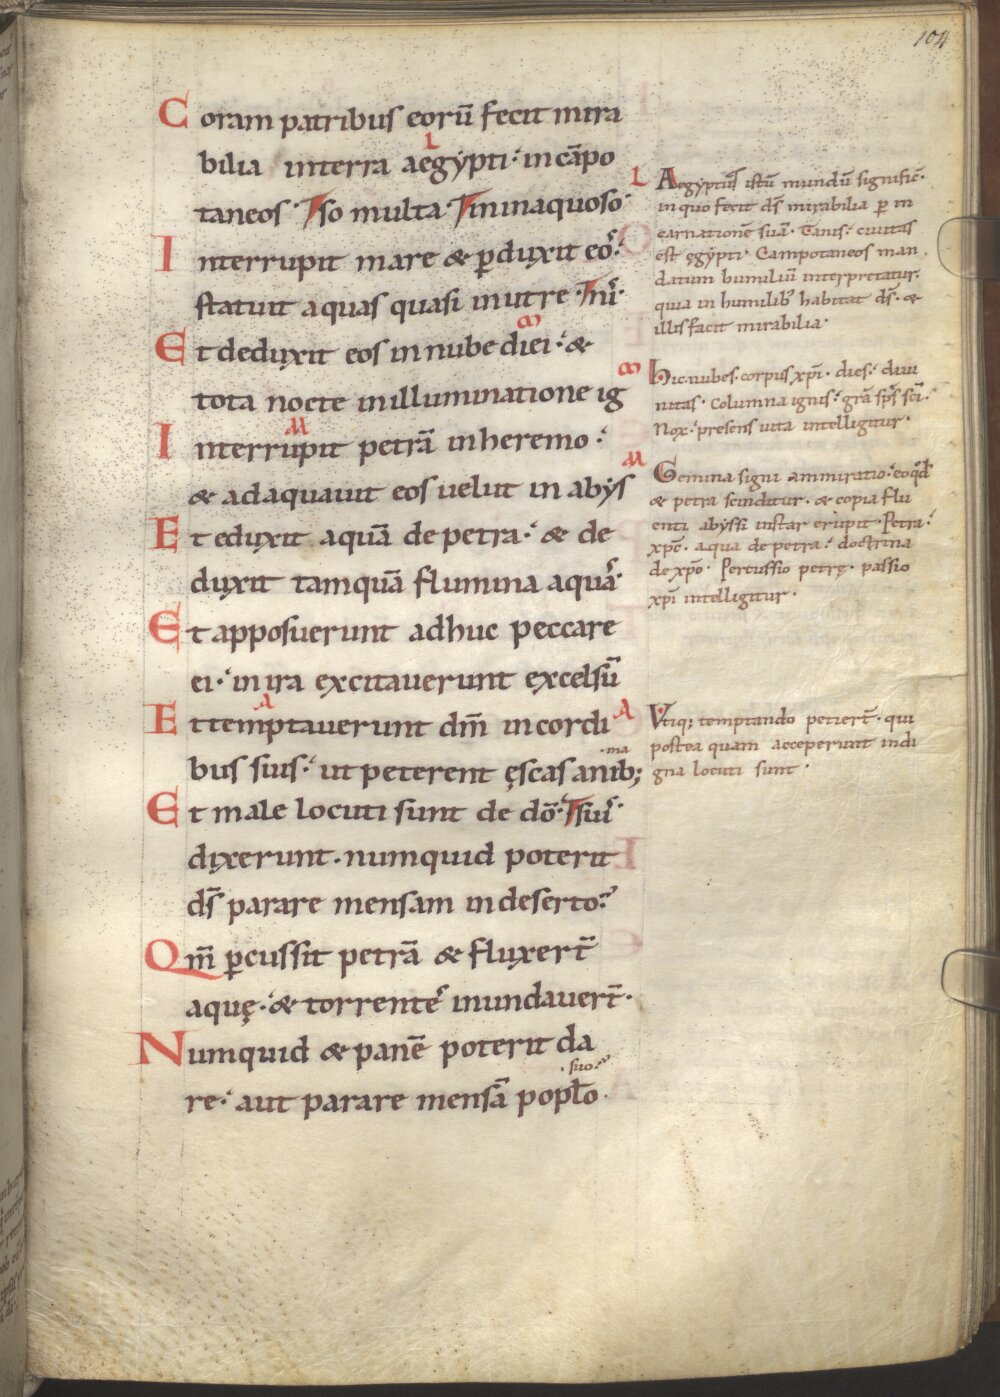 104
Coram patribus eorū fecit mira
bilia interra aegẏpti · incāpo
taneos · so multa · ininaquoso
Interrupit mare & ꝑduxit eo
statuit aquas quasi inutre · in
Et deduxit eos innube diei · &
tota nocte inilluminatione ig
Interrupit petrā inheremo ·
& adaquauit eos uelut in abẏs
Et eduxit aquā de petra · & de
duxit tamquā flumina aquā
Et apposuerunt adhuc peccare
ei · inira excitauerunt excelsū
Et temptauerunt dm̄ incordi
bus suis · ut peterent ęscas anib;
ma
Et male locuti sunt de dō · sui
dixerunt · numquid poterit
ds̄ parare mensam indeserto?
Qm̄ ꝑcussit petrā & fluxert̄
aquę · & torrente inundauert̄ ·
Numquid & panē poterit da
re · aut parare mensā popło
suo ?
L Aegẏptus istū mundū signific̄ ·
in quo fecit ds̄ mirabilia ꝑ in
carnationē suā · Tanis · ciuitas
est ęgẏpti · Campotaneos man
datum humiliū interpretatur ·
quia in humilib; habitat ds̄ · &
illis facit mirabilia ·
Hic nubes · corpus xp̄i · dies · diui
nitas · Columna ignis · gr̄a sp̄s sc̄i ·
Nox · presens uita intelligitur ·
Gemina signi ammiratio · eoqd
& petra scinditur · & copia flu
enti abẏssi instar erupit · Petra ·
xp̄c · aqua de petra · doctrina
de xp̄o · Percussio petrę · passio
xp̄i intelligitur ·
A Vtiq; temptando petiert̄ · qui
postea quam acceperunt indi
gna locuti sunt ·